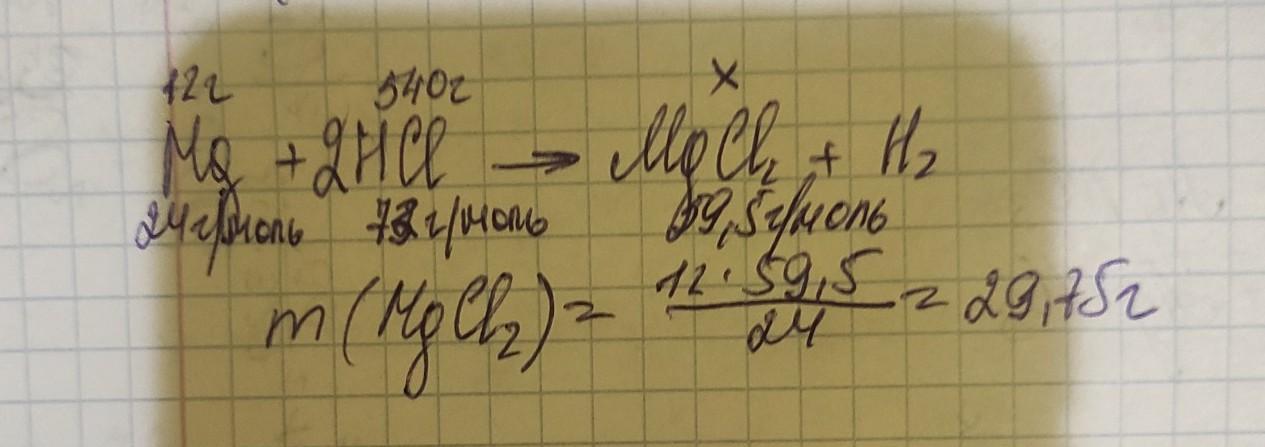 12г 540г x
Mg + 2HCl → MgCl₂ + H₂
24г/моль 73г/моль 59,5г/моль
m(MgCl₂) = 12·59,5/24 = 29,75г